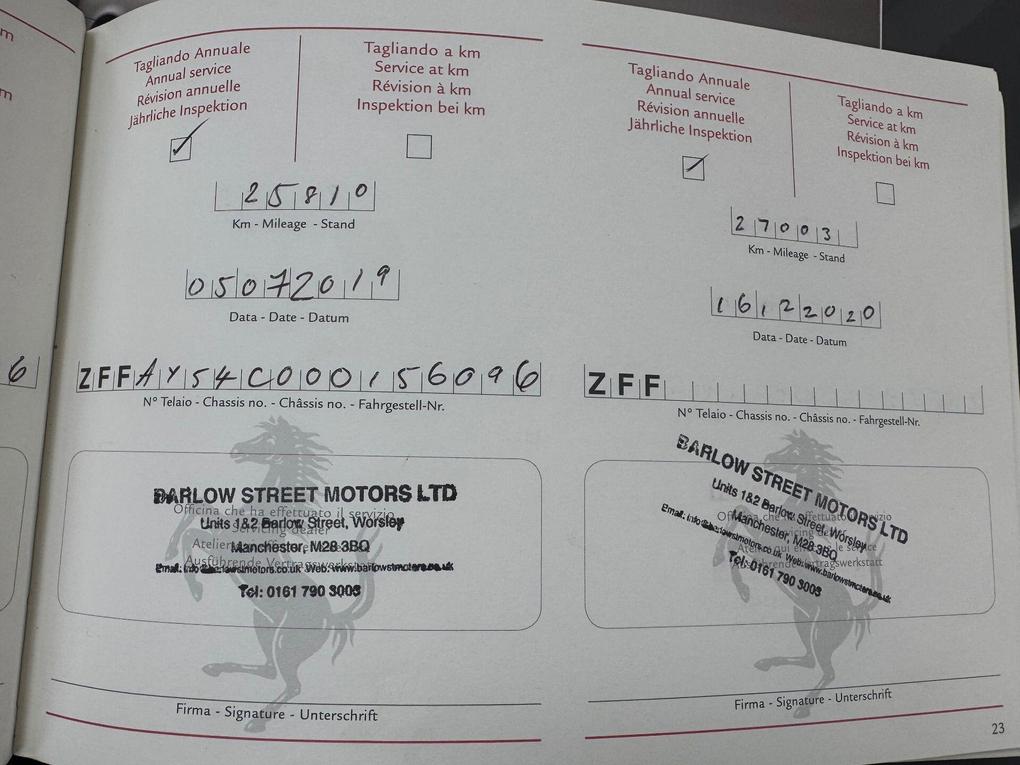 m
m
6
Tagliando Annuale
Annual service
Révision annuelle
Jährliche Inspektion
Tagliando a km
Service at km
Révision à km
Inspektion bei km
25810
Km - Mileage - Stand
05072019
Data - Date - Datum
ZFFAY54C000156096
N° Telaio - Chassis no. - Châssis no. - Fahrgestell-Nr.
BARLOW STREET MOTORS LTD
Officina che ha effettuato il servizio
Units 1&2 Barlow Street, Worsley
Servicing dealer
Manchester, M28 3BQ
Ausführende Vertragswerkstatt
Tel: 0161 790 3003
Firma - Signature - Unterschrift
Tagliando Annuale
Annual service
Révision annuelle
Jährliche Inspektion
Tagliando a km
Service at km
Révision à km
Inspektion bei km
27003
Km - Mileage - Stand
16122020
Data - Date - Datum
ZFF
N° Telaio - Chassis no. - Châssis no. - Fahrgestell-Nr.
BARLOW STREET MOTORS LTD
Units 1&2 Barlow Street, Worsley
Manchester, M28 3BQ
Web: www.barlowstmotors.co.uk
Tel: 0161 790 3003
Firma - Signature - Unterschrift
23